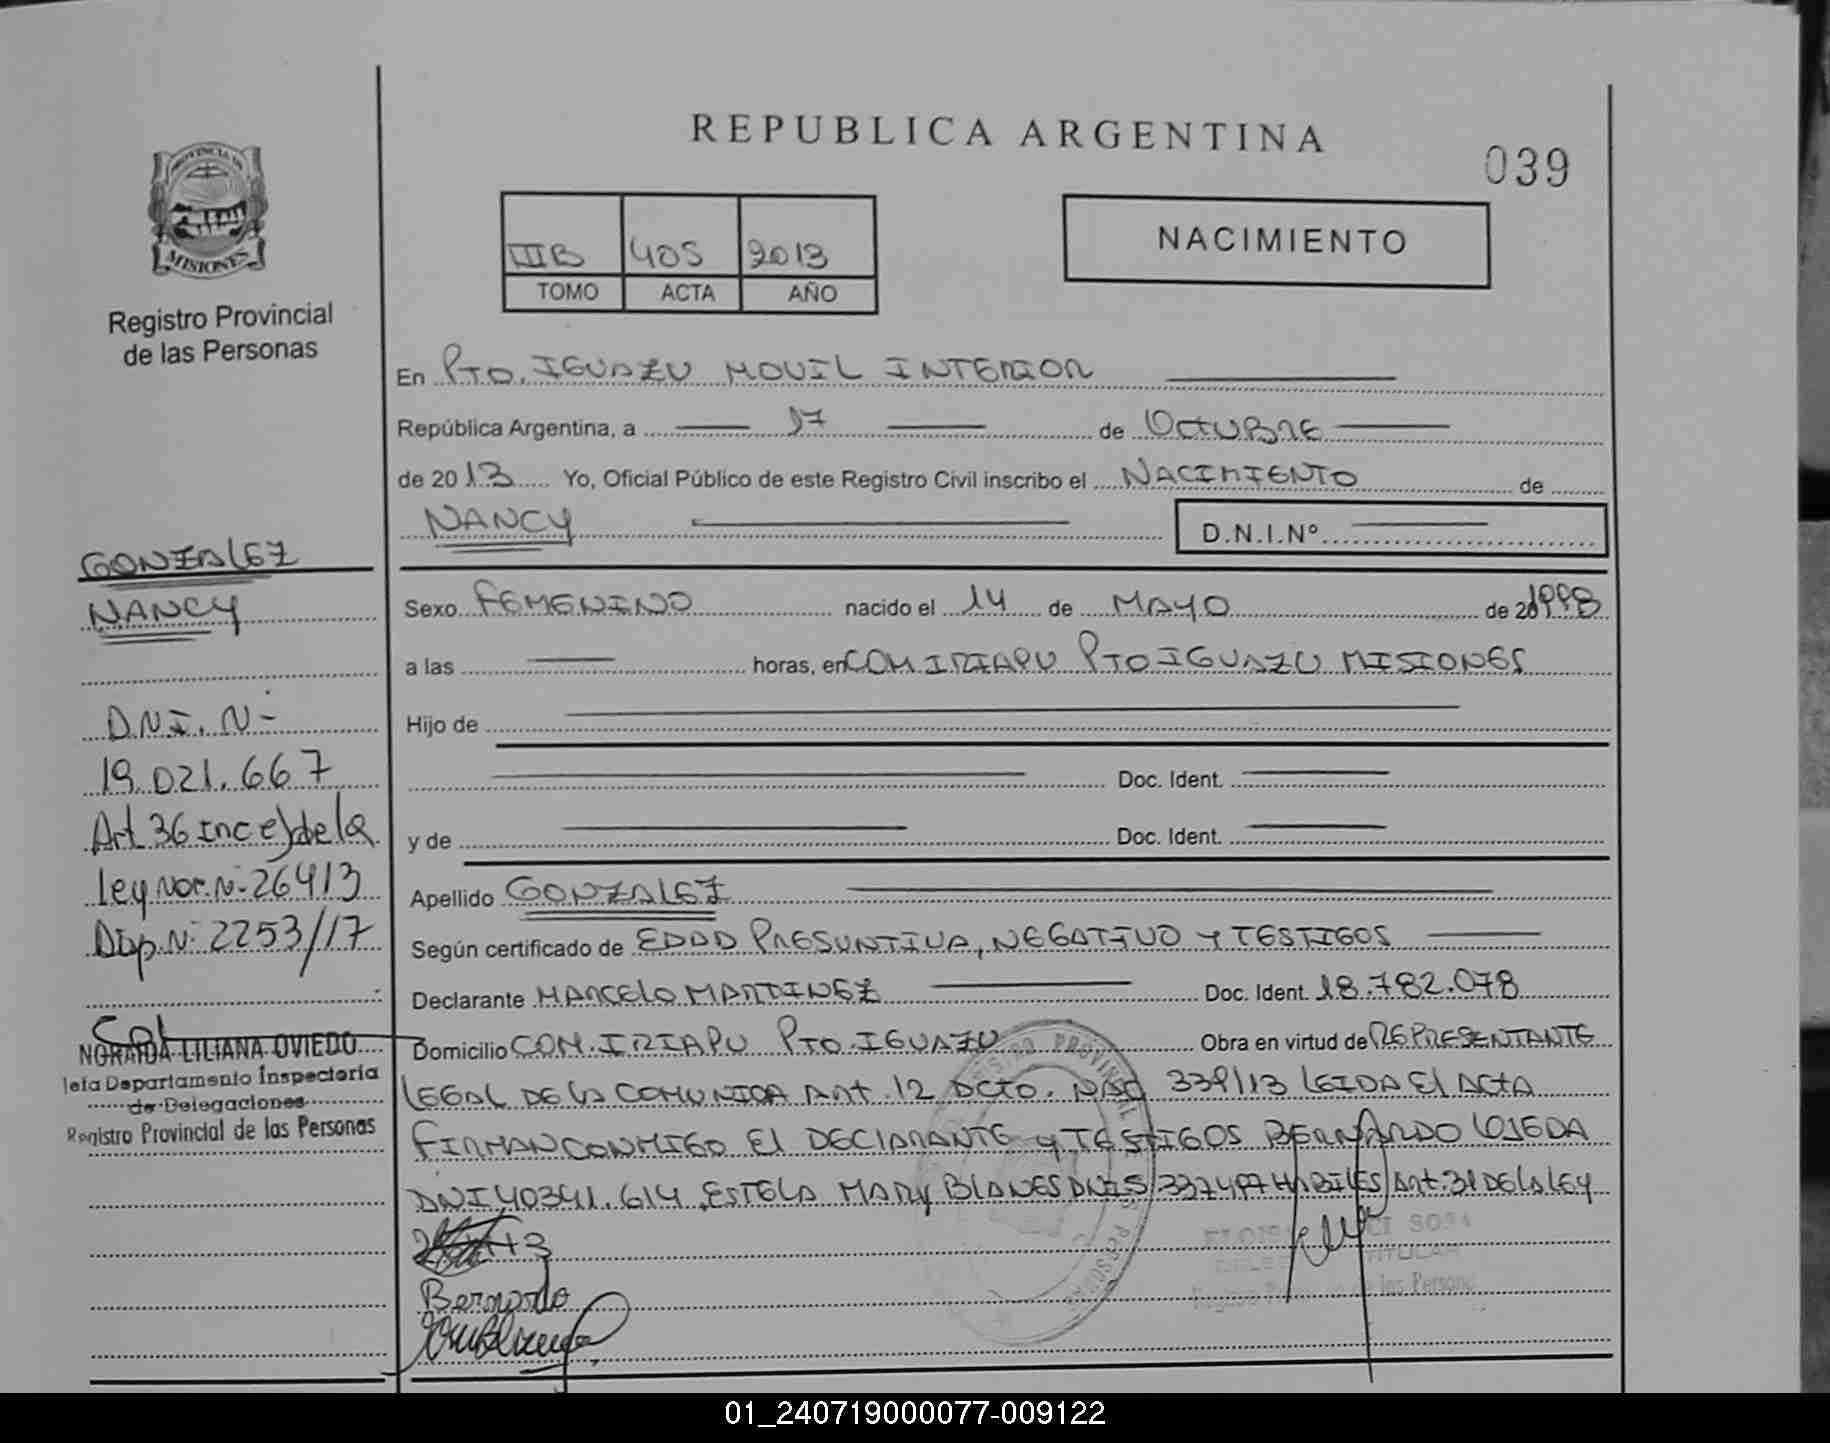 REPUBLICA ARGENTINA
039
PROVINCIA DE
MISIONES
Registro Provincial
de las Personas
IIIB 405 2013
TOMO ACTA AÑO
NACIMIENTO
En PTO. IGUAZU MOVIL INTERIOR
República Argentina, a 17 de OCTUBRE
de 2013 Yo, Oficial Público de este Registro Civil inscribo el NACIMIENTO de
NANCY
D.N.I.Nº
GONZALEZ
NANCY
D.N.I. N-
19.021.667
Art 36 inc e) de la
Ley Nor. N- 26413
Disp. N- 2253/17
NORAIDA LILIANA OVIEDO
Jefa Departamento Inspectoria
de Delegaciones
Registro Provincial de las Personas
Sexo FEMENINO nacido el 14 de MAYO de 201998
a las horas, en COM. IRIAPU PTO IGUAZU MISIONES
Hijo de
Doc. Ident.
y de Doc. Ident.
Apellido GONZALEZ
Según certificado de EDAD PRESUNTIVA, NEGATIVO Y TESTIGOS
Declarante MARCELO MARTINEZ Doc. Ident. 18.782.078
Domicilio COM. IRIAPU PTO. IGUAZU Obra en virtud de REPRESENTANTE
LEGAL DE LA COMUNIDA ART. 12 DCTO. NAC 339/13 LEIDA El ACTA
FIRMAN CONMIGO El DECLARANTE y TESTIGOS BERNARDO OJEDA
DNI 40341.614, ESTELA MARY BLANES DNI 5/337497 HABILES Art. 31 DE LA LEY
Bernardo
01_240719000077-009122